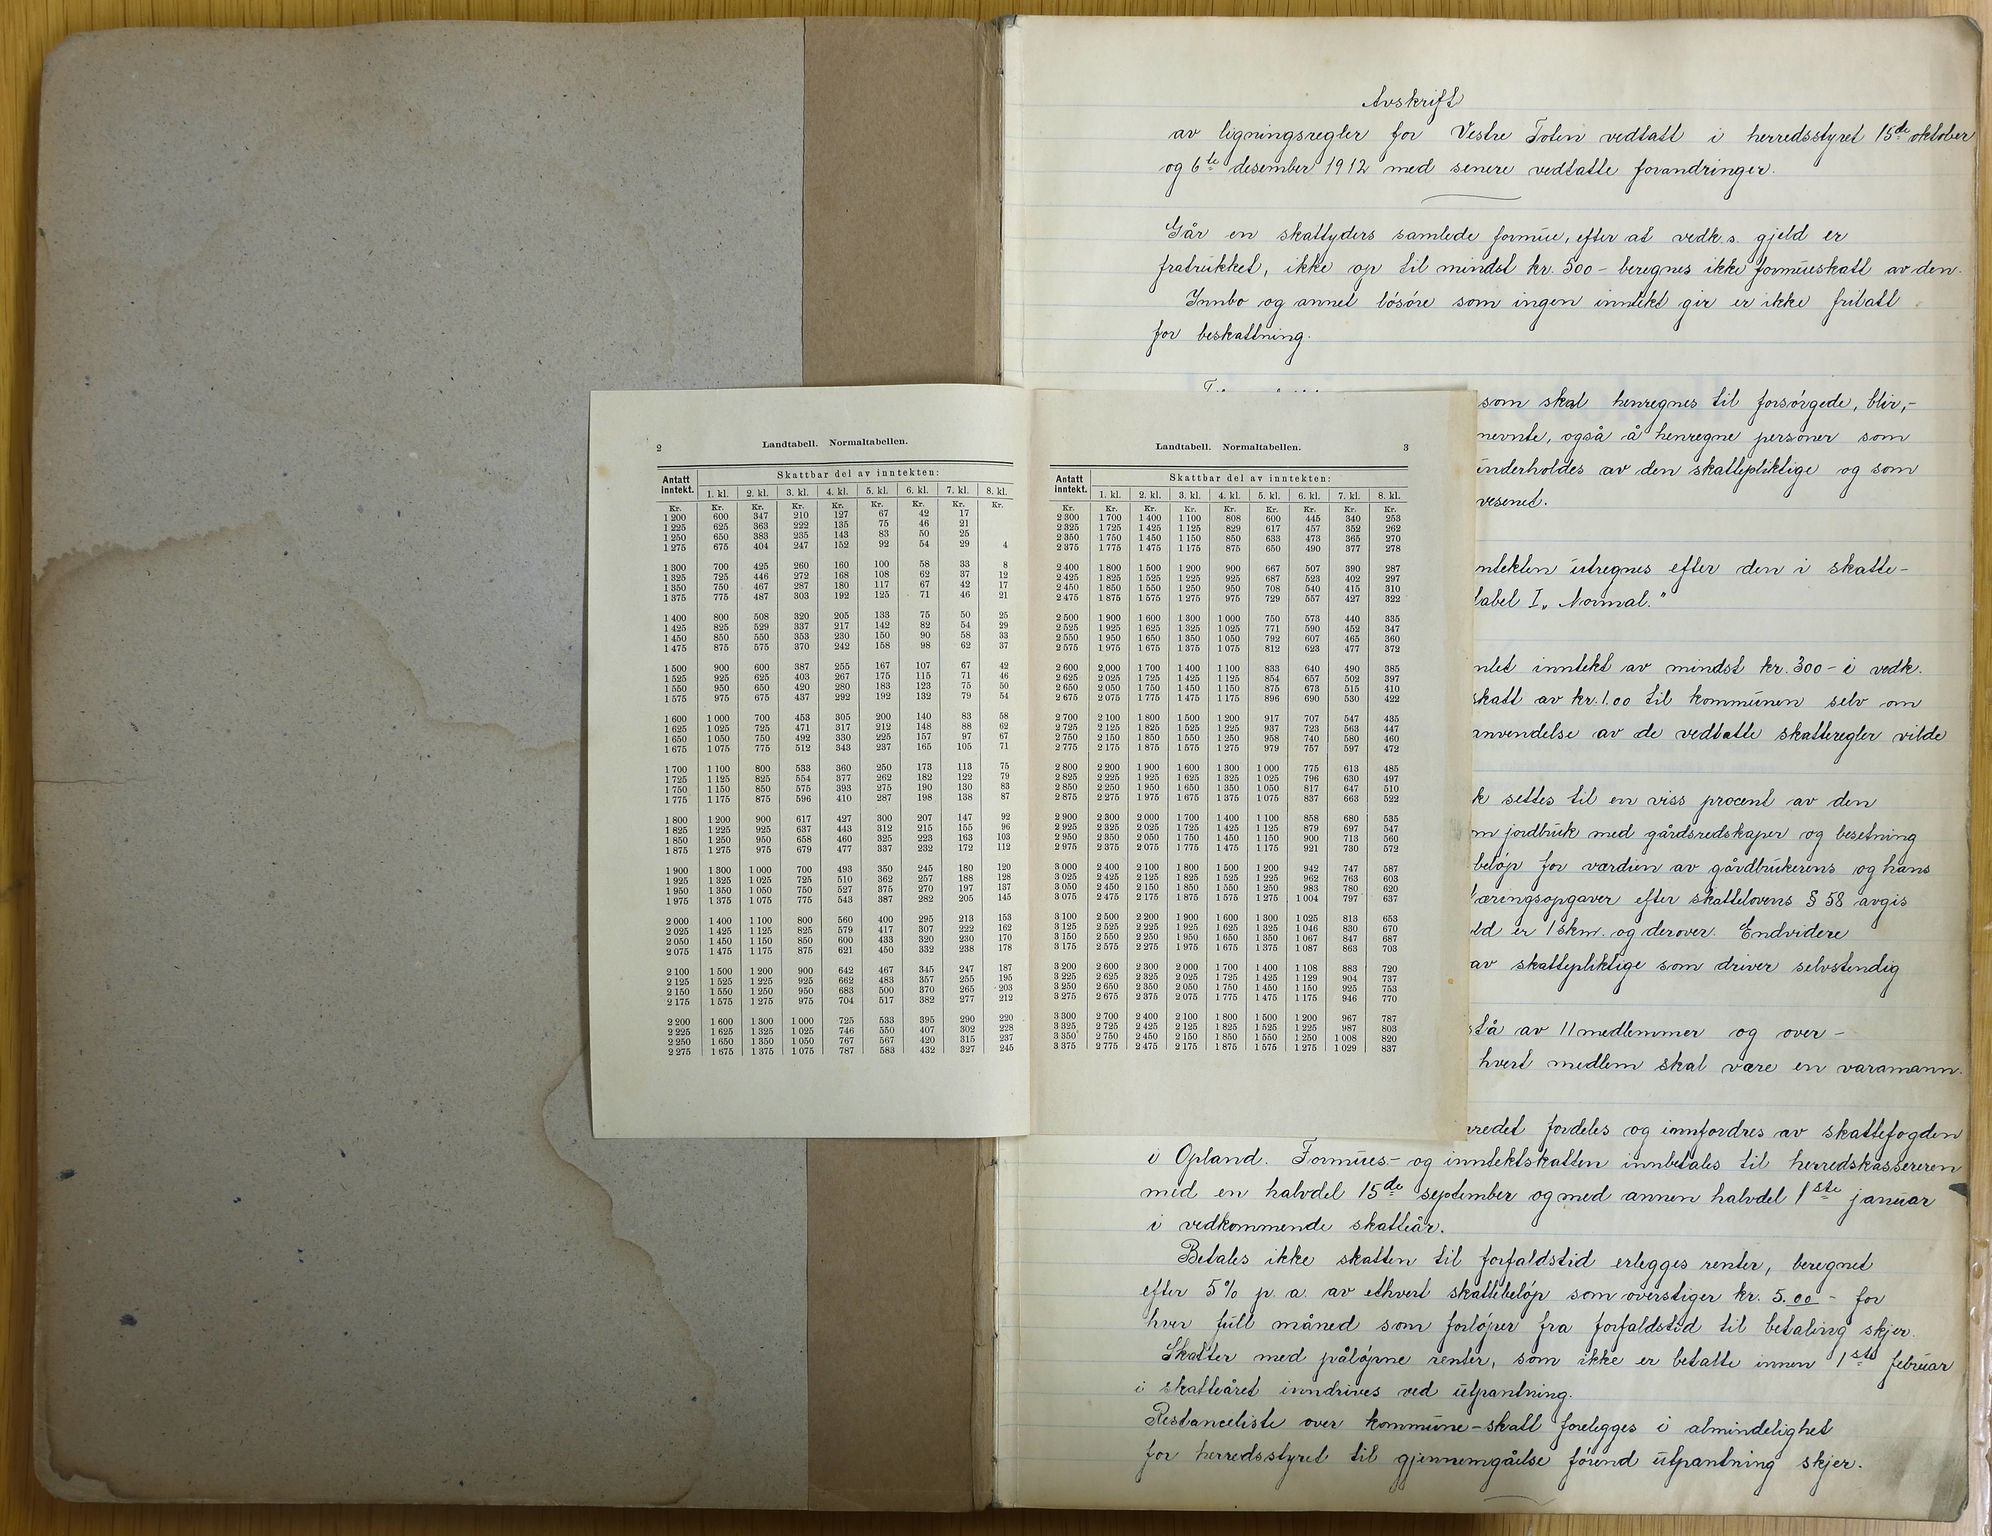 Avskrift
av ligningsregler for Vestre Toten vedtatt i herredsstyret 15de oktober
og 6te desember 1912 med senere vedtatte forandringer.
Går en skattyders samlede formue, efter at vedk.s. gjeld er
fratrukket, ikke op til mindst kr. 500 - beregnes ikke formueskatt av den.
Innbo og annet løsøre som ingen inntekt gir er ikke fritatt
for beskattning.
som skal henregnes til forsørgede, blir,-
nevnte, også å henregne personer som
underholdes av den skattepliktige og som
vesenet.
ntekten utregnes efter den i skatte-
tabel I „Normal."
mlet inntekt av mindst kr. 300 - i vedk.
skatt av kr. 1.00 til kommunen selv om
anvendelse av de vedtatte skatteregler vilde
k settes til en viss procent av den
m jordbruk med gårdsredskaper og besetning
beløp for værdien av gårdbrukerens og hans
æringsopgaver efter skattelovens § 58 avgis
ld er 1 skm. og derover. Endvidere
av skattepliktige som driver selvstendig
stå av 11 medlemmer og over-
hvert medlem skal være en varamann.
rredet fordeles og innfordres av skattefogden
i Opland. Formues- og inntektskatten innbetales til herredskassereren
med en halvdel 15de september og med annen halvdel 1ste januar
i vedkommende skatteår.
Betales ikke skatten til forfaldstid erlegges renter, beregnet
efter 5% p. a. av ethvert skattebeløp som overstiger kr. 5.00 - for
hver full måned som forløper fra forfaldstid til betaling skjer.
Skatter med påløpne renter, som ikke er betalte innen 1ste februar
i skatteåret inndrives ved utpantning.
Restanceliste over kommune-skatt forelegges i almindelighet
for herredsstyret til gjennemgåelse førend utpantning skjer.
2 Landtabell. Normaltabellen.
Antatt inntekt. Skattbar del av inntekten:
1. kl. 2. kl. 3. kl. 4. kl. 5. kl. 6. kl. 7. kl. 8. kl.
Kr. Kr. Kr. Kr. Kr. Kr. Kr. Kr. Kr.
1 200 600 347 210 127 67 42 17
1 225 625 363 222 135 75 46 21
1 250 650 383 235 143 83 50 25
1 275 675 404 247 152 92 54 29 4
1 300 700 425 260 160 100 58 33 8
1 325 725 446 272 168 108 62 37 12
1 350 750 467 287 180 117 67 42 17
1 375 775 487 303 192 125 71 46 21
1 400 800 508 320 205 133 75 50 25
1 425 825 529 337 217 142 82 54 29
1 450 850 550 353 230 150 90 58 33
1 475 875 575 370 242 158 98 62 37
1 500 900 600 387 255 167 107 67 42
1 525 925 625 403 267 175 115 71 46
1 550 950 650 420 280 183 123 75 50
1 575 975 675 437 292 192 132 79 54
1 600 1 000 700 453 305 200 140 83 58
1 625 1 025 725 471 317 212 148 88 62
1 650 1 050 750 492 330 225 157 97 67
1 675 1 075 775 512 343 237 165 105 71
1 700 1 100 800 533 360 250 173 113 75
1 725 1 125 825 554 377 262 182 122 79
1 750 1 150 850 575 393 275 190 130 83
1 775 1 175 875 596 410 287 198 138 87
1 800 1 200 900 617 427 300 207 147 92
1 825 1 225 925 637 443 312 215 155 96
1 850 1 250 950 658 460 325 223 163 103
1 875 1 275 975 679 477 337 232 172 112
1 900 1 300 1 000 700 493 350 245 180 120
1 925 1 325 1 025 725 510 362 257 188 128
1 950 1 350 1 050 750 527 375 270 197 137
1 975 1 375 1 075 775 543 387 282 205 145
2 000 1 400 1 100 800 560 400 295 213 153
2 025 1 425 1 125 825 579 417 307 222 162
2 050 1 450 1 150 850 600 433 320 230 170
2 075 1 475 1 175 875 621 450 332 238 178
2 100 1 500 1 200 900 642 467 345 247 187
2 125 1 525 1 225 925 662 483 357 255 195
2 150 1 550 1 250 950 683 500 370 265 203
2 175 1 575 1 275 975 704 517 382 277 212
2 200 1 600 1 300 1 000 725 533 395 290 220
2 225 1 625 1 325 1 025 746 550 407 302 228
2 250 1 650 1 350 1 050 767 567 420 315 237
2 275 1 675 1 375 1 075 787 583 432 327 245
Landtabell. Normaltabellen. 3
Antatt inntekt. Skattbar del av inntekten:
1. kl. 2. kl. 3. kl. 4. kl. 5. kl. 6. kl. 7. kl. 8. kl.
Kr. Kr. Kr. Kr. Kr. Kr. Kr. Kr. Kr.
2 300 1 700 1 400 1 100 808 600 445 340 253
2 325 1 725 1 425 1 125 829 617 457 352 262
2 350 1 750 1 450 1 150 850 633 473 365 270
2 375 1 775 1 475 1 175 875 650 490 377 278
2 400 1 800 1 500 1 200 900 667 507 390 287
2 425 1 825 1 525 1 225 925 687 523 402 297
2 450 1 850 1 550 1 250 950 708 540 415 310
2 475 1 875 1 575 1 275 975 729 557 427 322
2 500 1 900 1 600 1 300 1 000 750 573 440 335
2 525 1 925 1 625 1 325 1 025 771 590 452 347
2 550 1 950 1 650 1 350 1 050 792 607 465 360
2 575 1 975 1 675 1 375 1 075 812 623 477 372
2 600 2 000 1 700 1 400 1 100 833 640 490 385
2 625 2 025 1 725 1 425 1 125 854 657 502 397
2 650 2 050 1 750 1 450 1 150 875 673 515 410
2 675 2 075 1 775 1 475 1 175 896 690 530 422
2 700 2 100 1 800 1 500 1 200 917 707 547 435
2 725 2 125 1 825 1 525 1 225 937 723 563 447
2 750 2 150 1 850 1 550 1 250 958 740 580 460
2 775 2 175 1 875 1 575 1 275 979 757 597 472
2 800 2 200 1 900 1 600 1 300 1 000 775 613 485
2 825 2 225 1 925 1 625 1 325 1 025 796 630 497
2 850 2 250 1 950 1 650 1 350 1 050 817 647 510
2 875 2 275 1 975 1 675 1 375 1 075 837 663 522
2 900 2 300 2 000 1 700 1 400 1 100 858 680 535
2 925 2 325 2 025 1 725 1 425 1 125 879 697 547
2 950 2 350 2 050 1 750 1 450 1 150 900 713 560
2 975 2 375 2 075 1 775 1 475 1 175 921 730 572
3 000 2 400 2 100 1 800 1 500 1 200 942 747 587
3 025 2 425 2 125 1 825 1 525 1 225 962 763 603
3 050 2 450 2 150 1 850 1 550 1 250 983 780 620
3 075 2 475 2 175 1 875 1 575 1 275 1 004 797 637
3 100 2 500 2 200 1 900 1 600 1 300 1 025 813 653
3 125 2 525 2 225 1 925 1 625 1 325 1 046 830 670
3 150 2 550 2 250 1 950 1 650 1 350 1 067 847 687
3 175 2 575 2 275 1 975 1 675 1 375 1 087 863 703
3 200 2 600 2 300 2 000 1 700 1 400 1 108 883 720
3 225 2 625 2 325 2 025 1 725 1 425 1 129 904 737
3 250 2 650 2 350 2 050 1 750 1 450 1 150 925 753
3 275 2 675 2 375 2 075 1 775 1 475 1 175 946 770
3 300 2 700 2 400 2 100 1 800 1 500 1 200 967 787
3 325 2 725 2 425 2 125 1 825 1 525 1 225 987 803
3 350 2 750 2 450 2 150 1 850 1 550 1 250 1 008 820
3 375 2 775 2 475 2 175 1 875 1 575 1 275 1 029 837